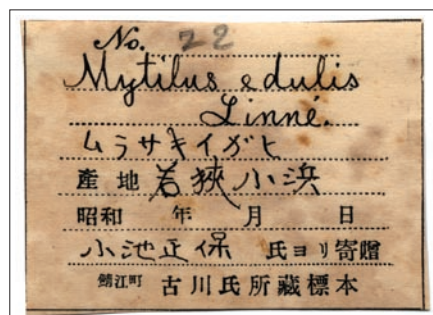 No. 22
Mytilus edulis
Linné.
ムラサキイガヒ
産地 若狹小浜
昭和 年 月 日
小池正保 氏ヨリ寄贈
鯖江町 古川氏所藏標本